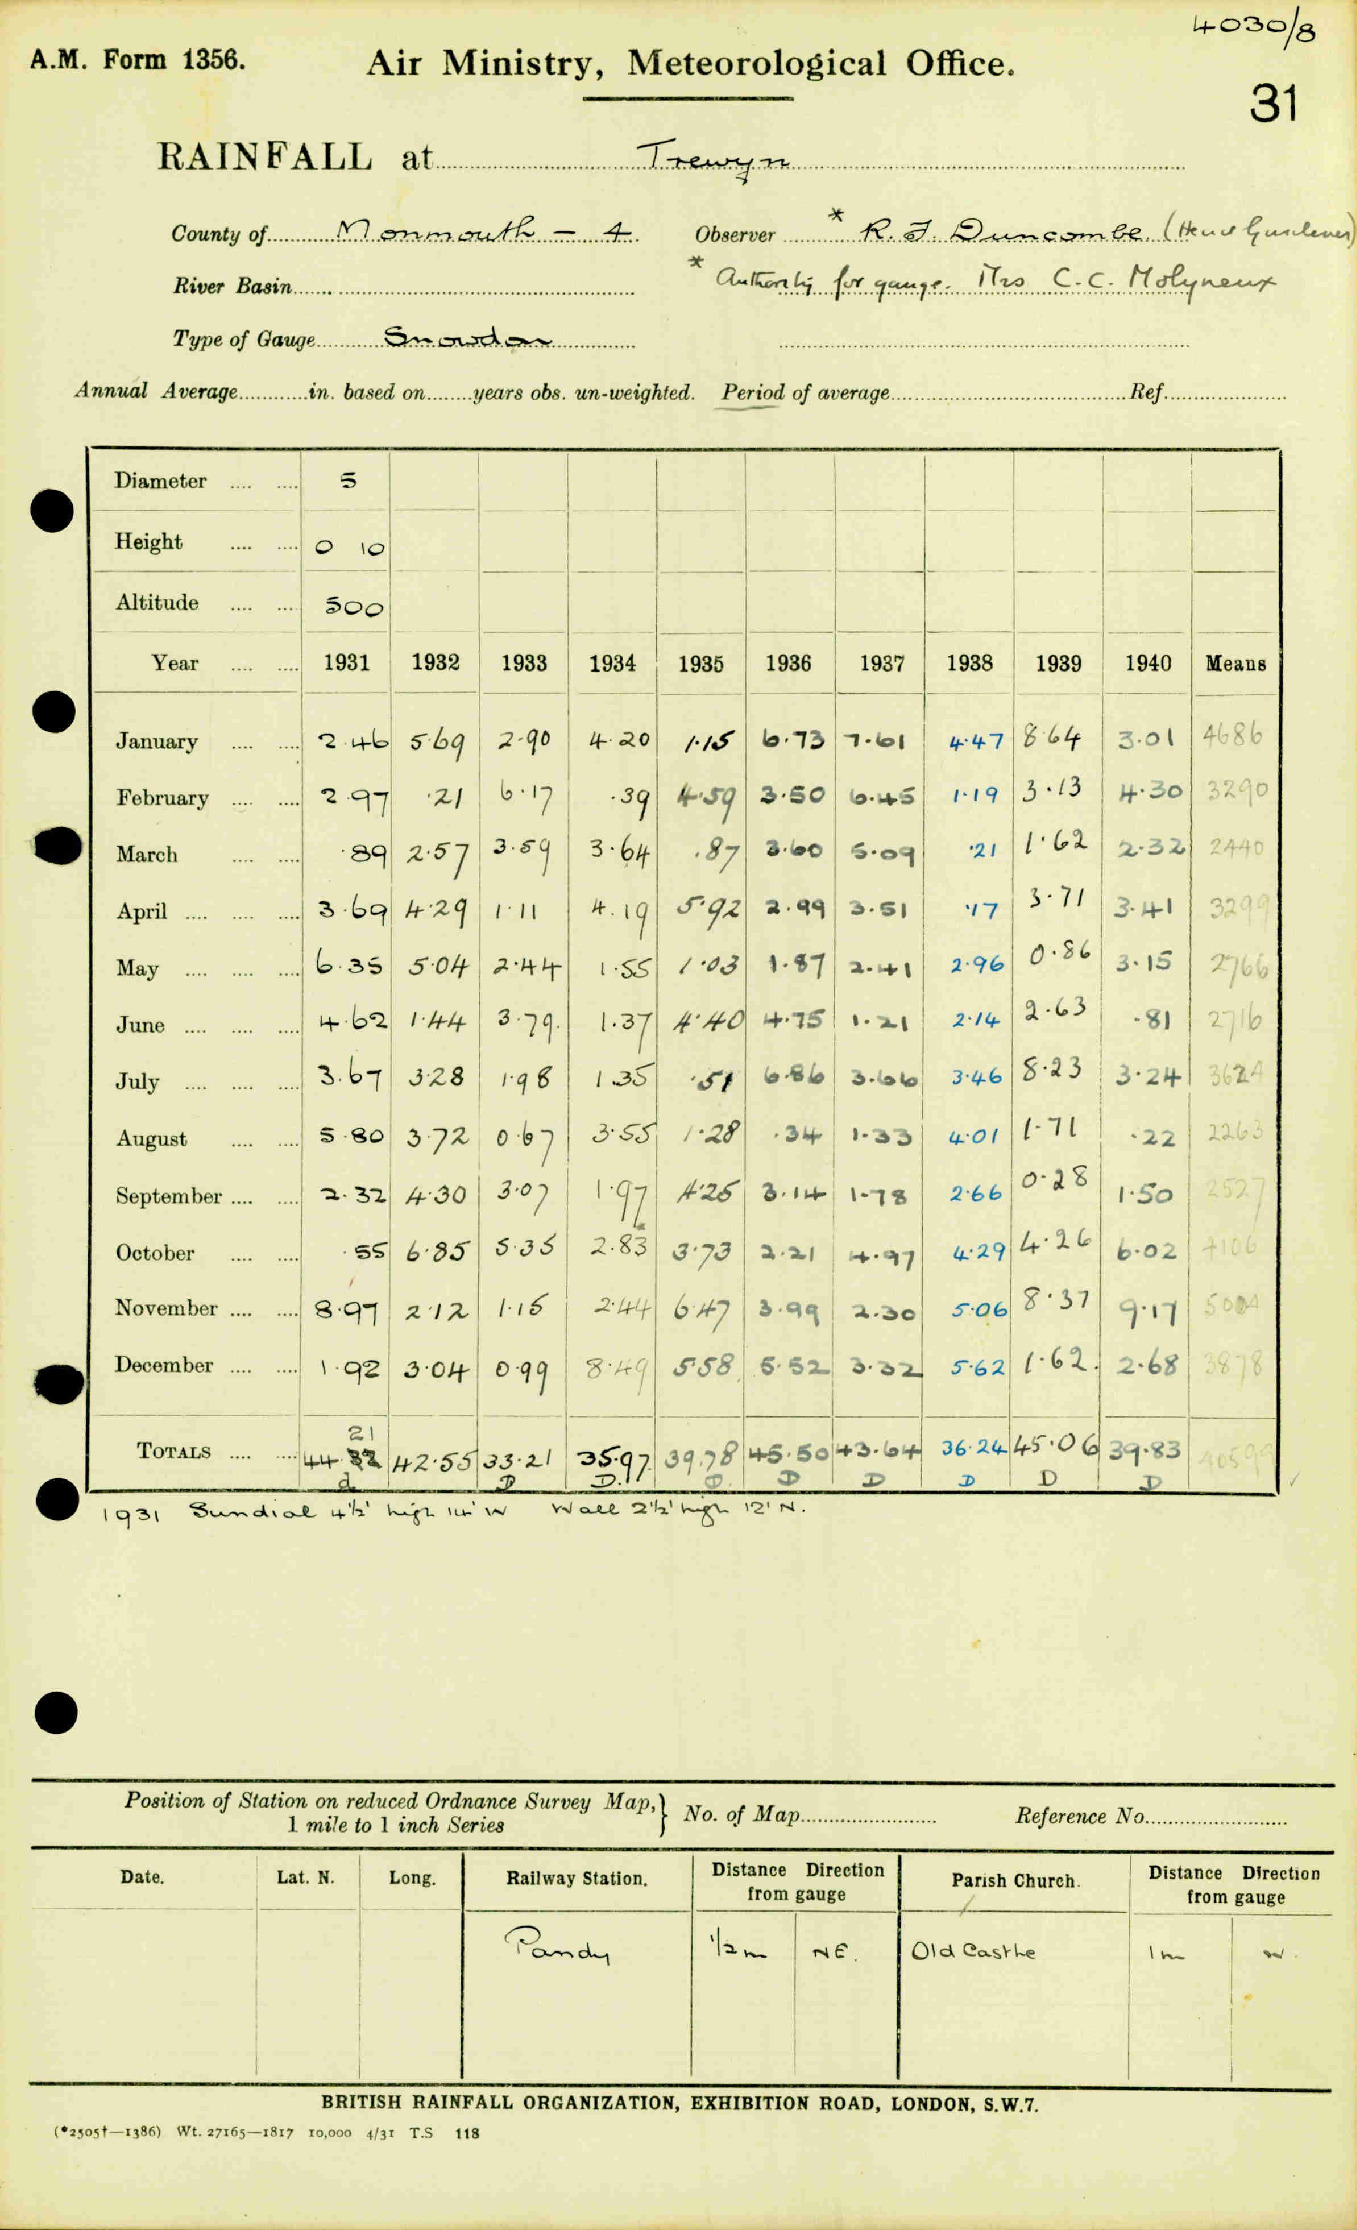 4030/8
A.M. Form 1356. Air Ministry, Meteorological Office.
31
RAINFALL at Trewyn
County of Monmouth - 4. Observer * R. J. Duncombe (Head Gardener)
River Basin * Authority for gauge. Mrs C.C. Molyneux
Type of Gauge Snowdon
Annual Average in. based on years obs. un-weighted. Period of average Ref.
Diameter 5
Height 0 10
Altitude 500
Year 1931 1932 1933 1934 1935 1936 1937 1938 1939 1940 Means
January 2.46 5.69 2.90 4.20 1.15 6.73 7.61 4.47 8.64 3.01 4686
February 2.97 .21 6.17 .39 4.59 3.50 6.45 1.19 3.13 4.30 3290
March .89 2.57 3.59 3.64 .87 3.60 5.09 .21 1.62 2.32 2440
April 3.69 4.29 1.11 4.19 5.92 2.99 3.51 .17 3.71 3.41 3299
May 6.35 5.04 2.44 1.55 1.03 1.87 2.41 2.96 0.86 3.15 2766
June 4.62 1.44 3.79 1.37 4.40 4.75 1.21 2.14 2.63 .81 2716
July 3.67 3.28 1.98 1.35 .51 6.86 3.66 3.46 8.23 3.24 3624
August 5.80 3.72 0.67 3.55 1.28 .34 1.33 4.01 1.71 .22 2263
September 2.32 4.30 3.07 1.97 4.25 3.14 1.78 2.66 0.28 1.50 2527
October .55 6.85 5.35 2.83 3.73 2.21 4.97 4.29 4.26 6.02 4106
November 8.97 2.12 1.15 2.44 6.47 3.99 2.30 5.06 8.37 9.17 5004
December 1.92 3.04 0.99 8.49 5.58 5.52 3.32 5.62 1.62. 2.68 3878
21
TOTALS 44. 42.55 33.21 35.97 39.78 45.50 43.64 36.24 45.06 39.83 40599
d D D. D D D D D D
1931 Sundial 4½' high 14' W Wall 2½' high 12' N.
Position of Station on reduced Ordnance Survey Map, 1 mile to 1 inch Series } No. of Map Reference No.
Date. Lat. N. Long. Railway Station. Distance Direction from gauge Parish Church. Distance Direction from gauge
Pandy ½ m NE. Old Castle 1m W.
BRITISH RAINFALL ORGANIZATION, EXHIBITION ROAD, LONDON, S.W.7.
(*2505†—1386) Wt. 27165—1817 10,000 4/31 T.S 118